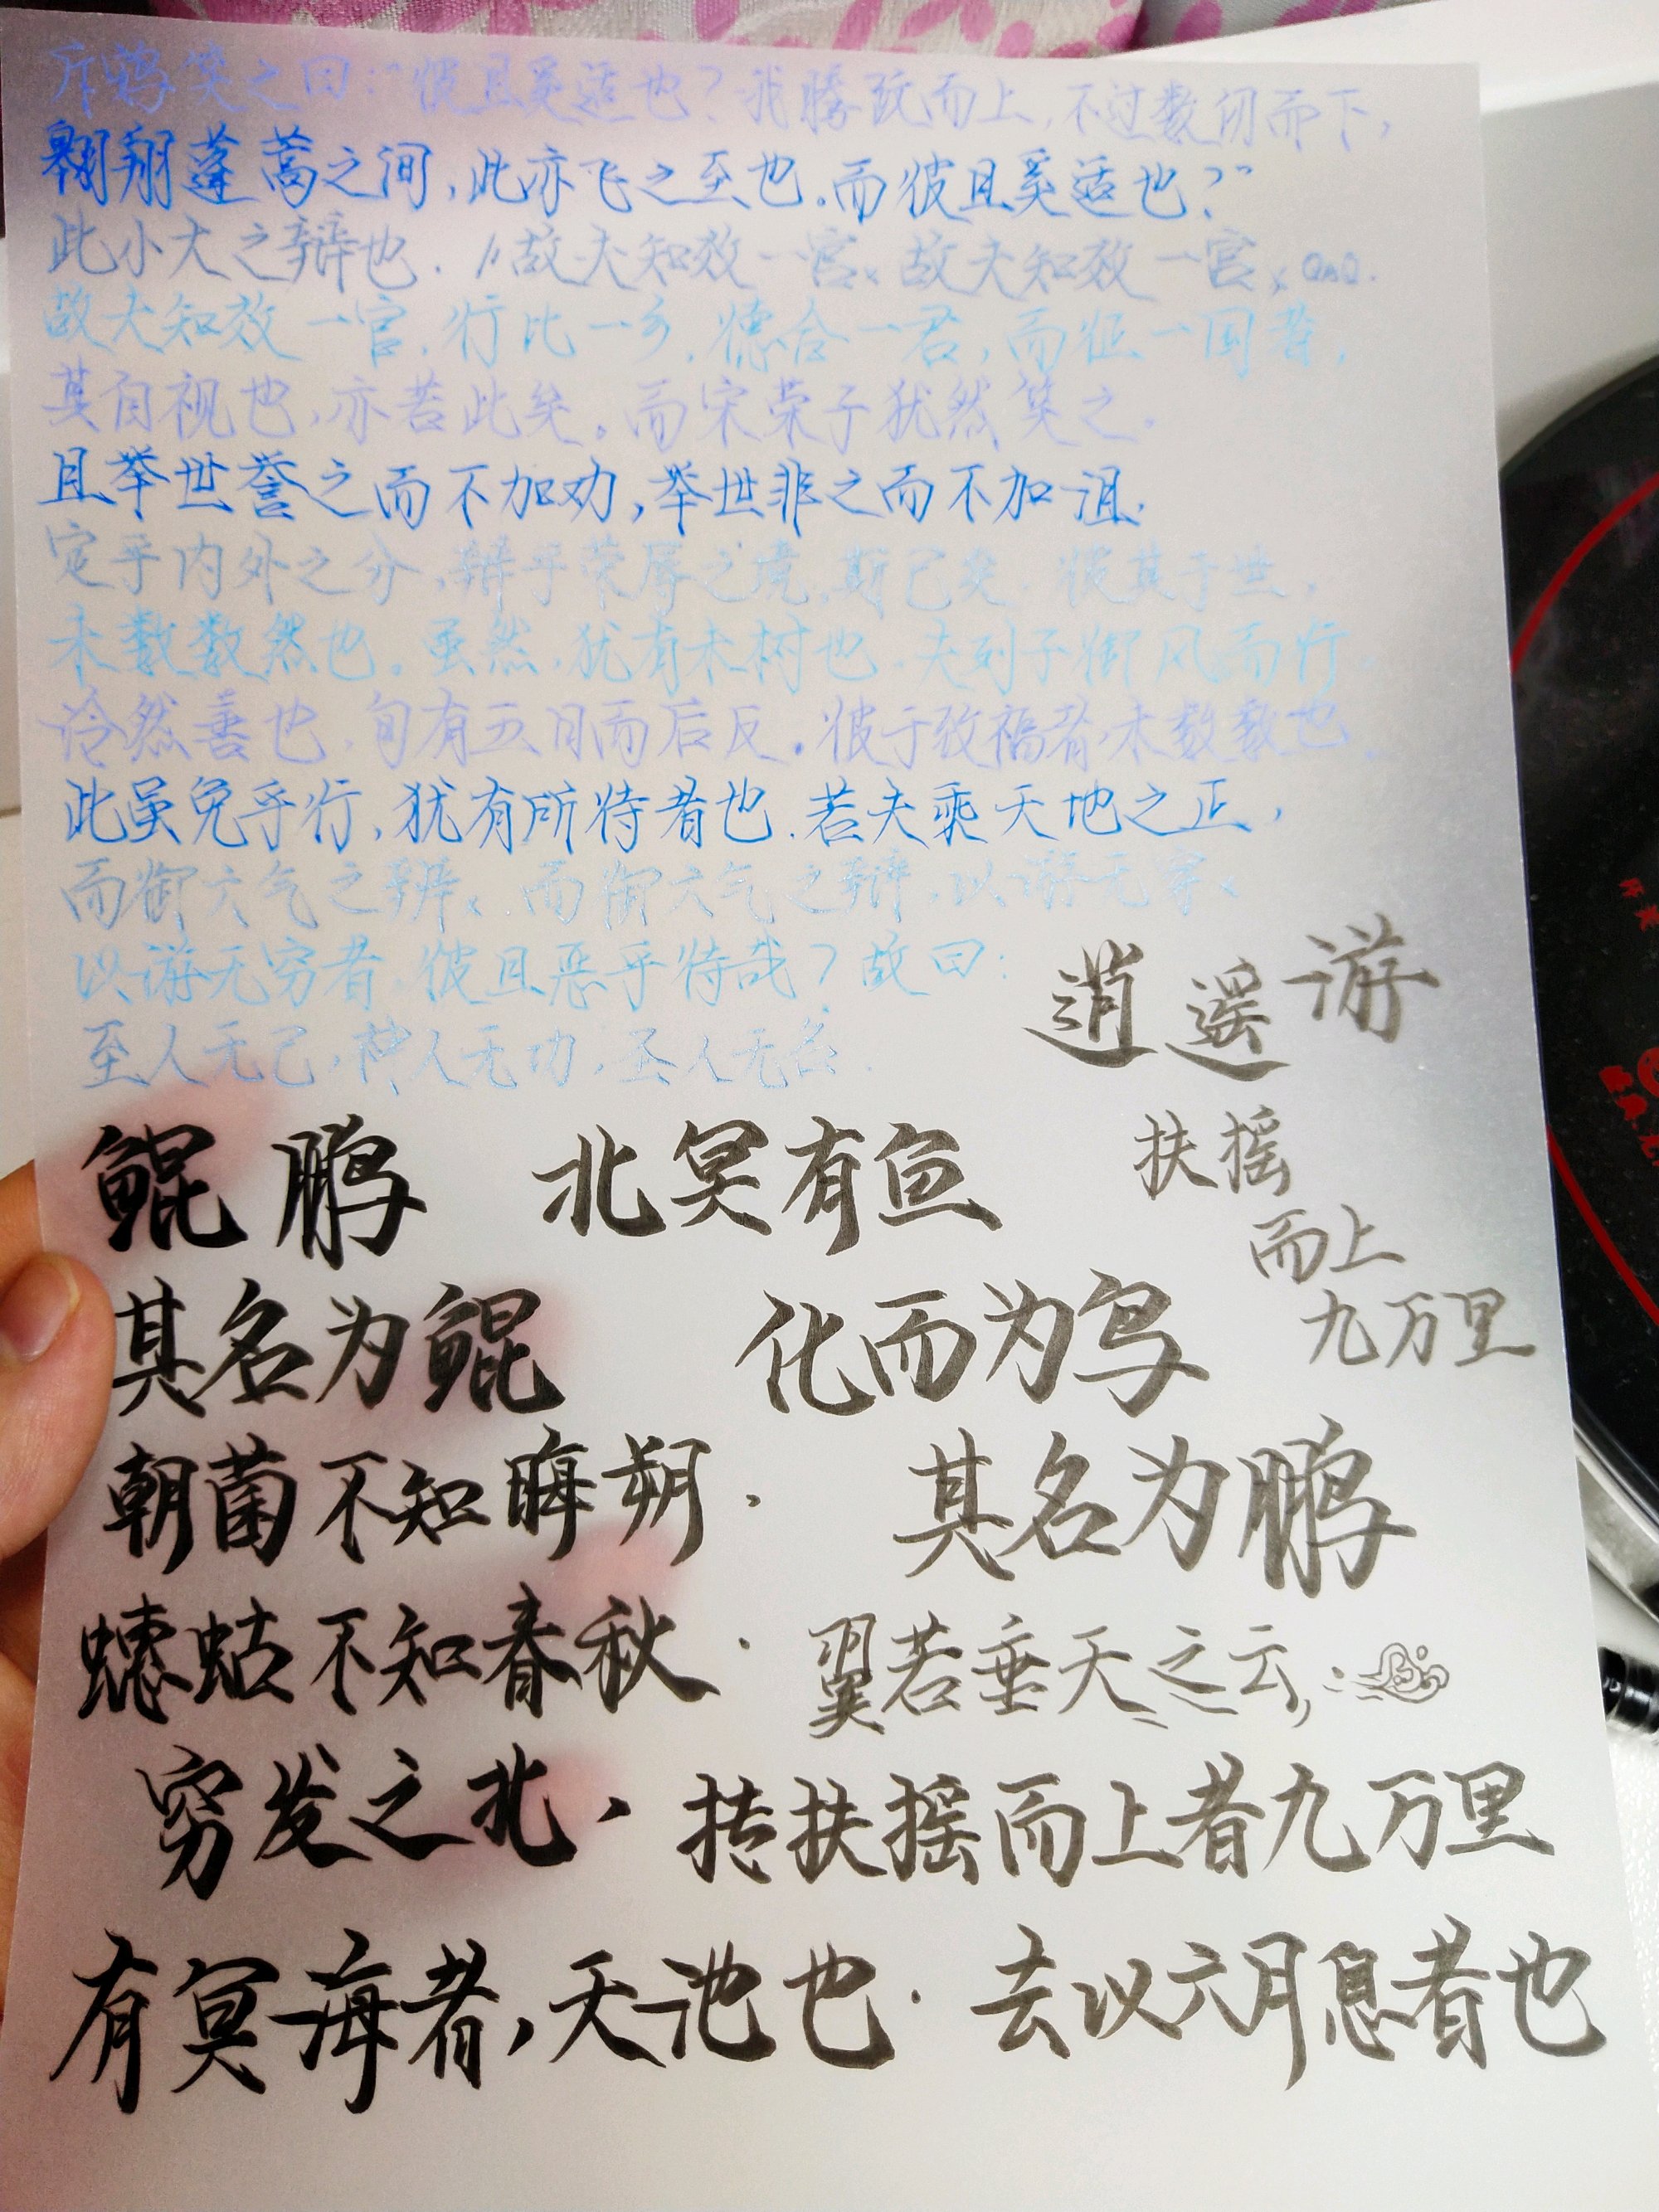 斥鴳笑之曰：“彼且奚适也？我腾跃而上，不过数仞而下，
翱翔蓬蒿之间，此亦飞之至也。而彼且奚适也？”
此小大之辩也。//故夫知效一官x 故夫知效一官x QAQ.
故夫知效一官，行比一乡，德合一君，而征一国者，
其自视也，亦若此矣。而宋荣子犹然笑之。
且举世誉之而不加劝，举世非之而不加沮.
定乎内外之分，辩乎荣辱之境，斯已矣. 彼其于世，
未数数然也。虽然，犹有未树也。夫列子御风而行，
泠然善也，旬有五日而后反。彼于致福者，未数数也。
此虽免乎行，犹有所待者也. 若夫乘天地之正，
而御六气之辩x 而御六气之辩，以游无穷x
以游无穷者，彼且恶乎待哉？故曰：
至人无己，神人无功，圣人无名.
逍遥游
扶摇
而上
九万里
鲲鹏 北冥有鱼
其名为鲲 化而为鸟
朝菌不知晦朔. 其名为鹏
蟪蛄不知春秋. 翼若垂天之云,
穷发之北、抟扶摇而上者九万里
有冥海者，天池也. 去以六月息者也